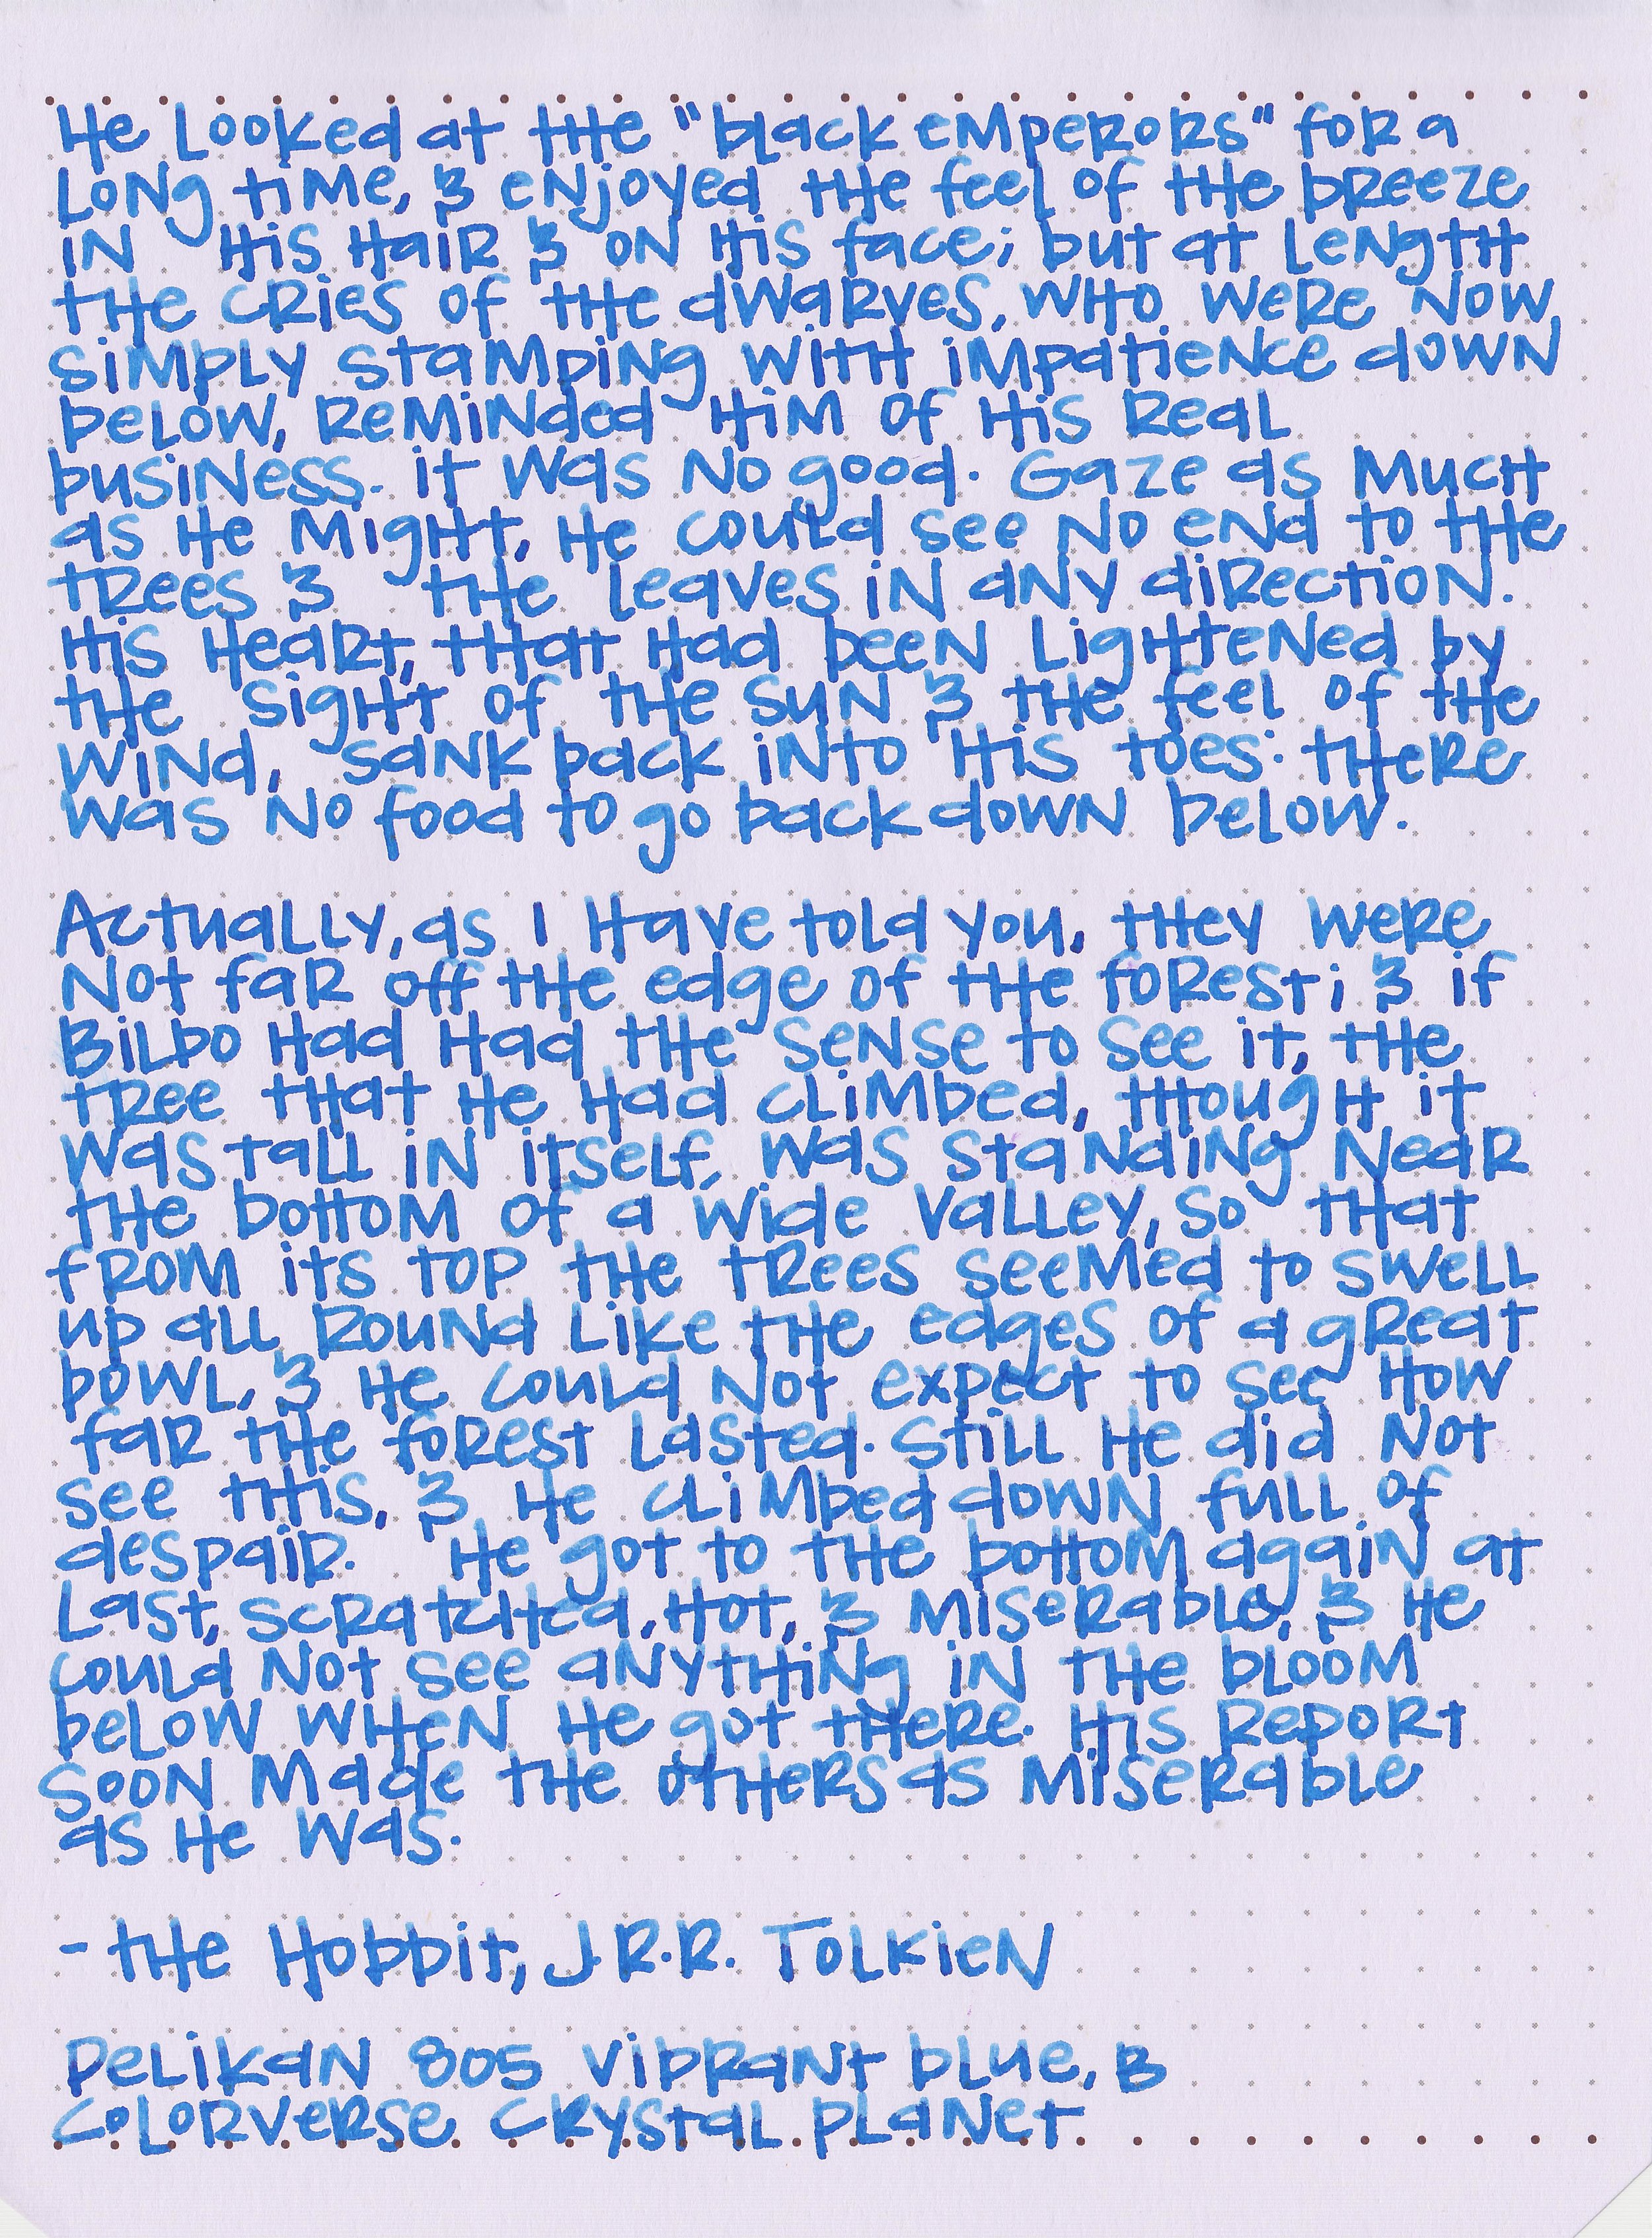 He looked at the "black emperors" for a
long time, & enjoyed the feel of the breeze
in his hair & on his face; but at length
the cries of the dwarves, who were now
simply stamping with impatience down
below, reminded him of his real
business. it was no good. Gaze as much
as he might, he could see no end to the
trees & the leaves in any direction.
His heart, that had been lightened by
the sight of the sun & the feel of the
wind, sank back into his toes: there
was no food to go back down below.

Actually, as I have told you, they were
not far off the edge of the forest; & if
Bilbo had had the sense to see it, the
tree that he had climbed, though it
was tall in itself, was standing near
the bottom of a wide valley, so that
from its top the trees seemed to swell
up all round like the edges of a great
bowl, & he could not expect to see how
far the forest lasted. Still he did not
see this, & he climbed down full of
despair. He got to the bottom again at
last, scratched, hot, & miserable, & he
could not see anything in the bloom
below when he got there. His report
soon made the others as miserable
as he was.

- the Hobbit, J.R.R. Tolkien

Pelikan 805 vibrant blue, B
Colorverse crystal planet